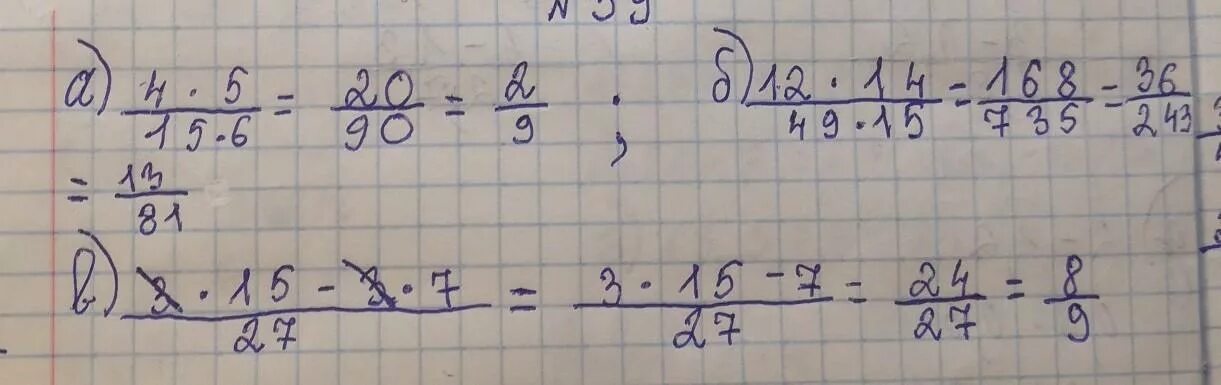 № 39
а) 4 · 5 / 15 · 6 = 20 / 90 = 2 / 9 ; б) 12 · 14 / 49 · 15 = 168 / 735 = 36 / 243
= 13 / 81
в) 3 · 15 - 3 · 7 / 27 = 3 · 15 - 7 / 27 = 24 / 27 = 8 / 9